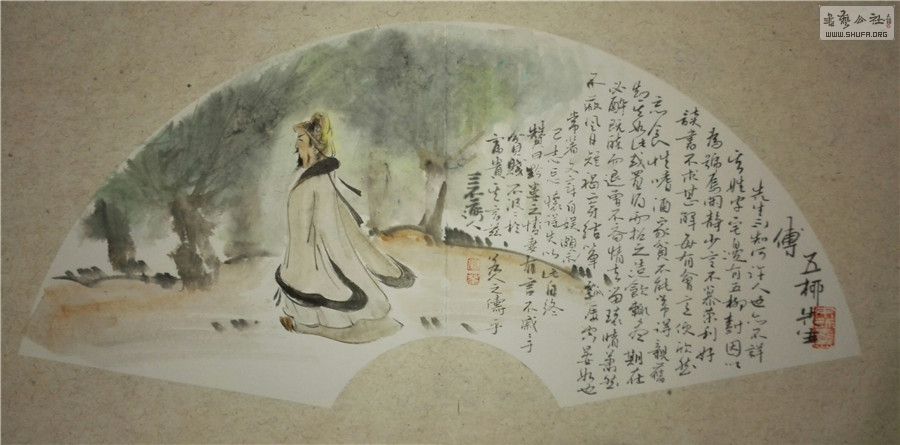 書藝公社
WWW.SHUFA.ORG
五柳先生
傳
先生不知何許人也亦不詳
其姓字宅邊有五柳樹因以
為號焉閑靜少言不慕榮利好
讀書不求甚解每有會意便欣然
忘食性嗜酒家貧不能常得親舊
知其如此或置酒而招之造飲輒盡期在
必醉既醉而退曾不吝情去留環堵蕭然
不蔽風日短褐穿結簞瓢屢空晏如也
常著文章自娛頗示
己志忘懷得失以此自終
贊曰黔婁之妻有言不戚于
貧賤不汲汲於
富貴其言茲若人之儔乎